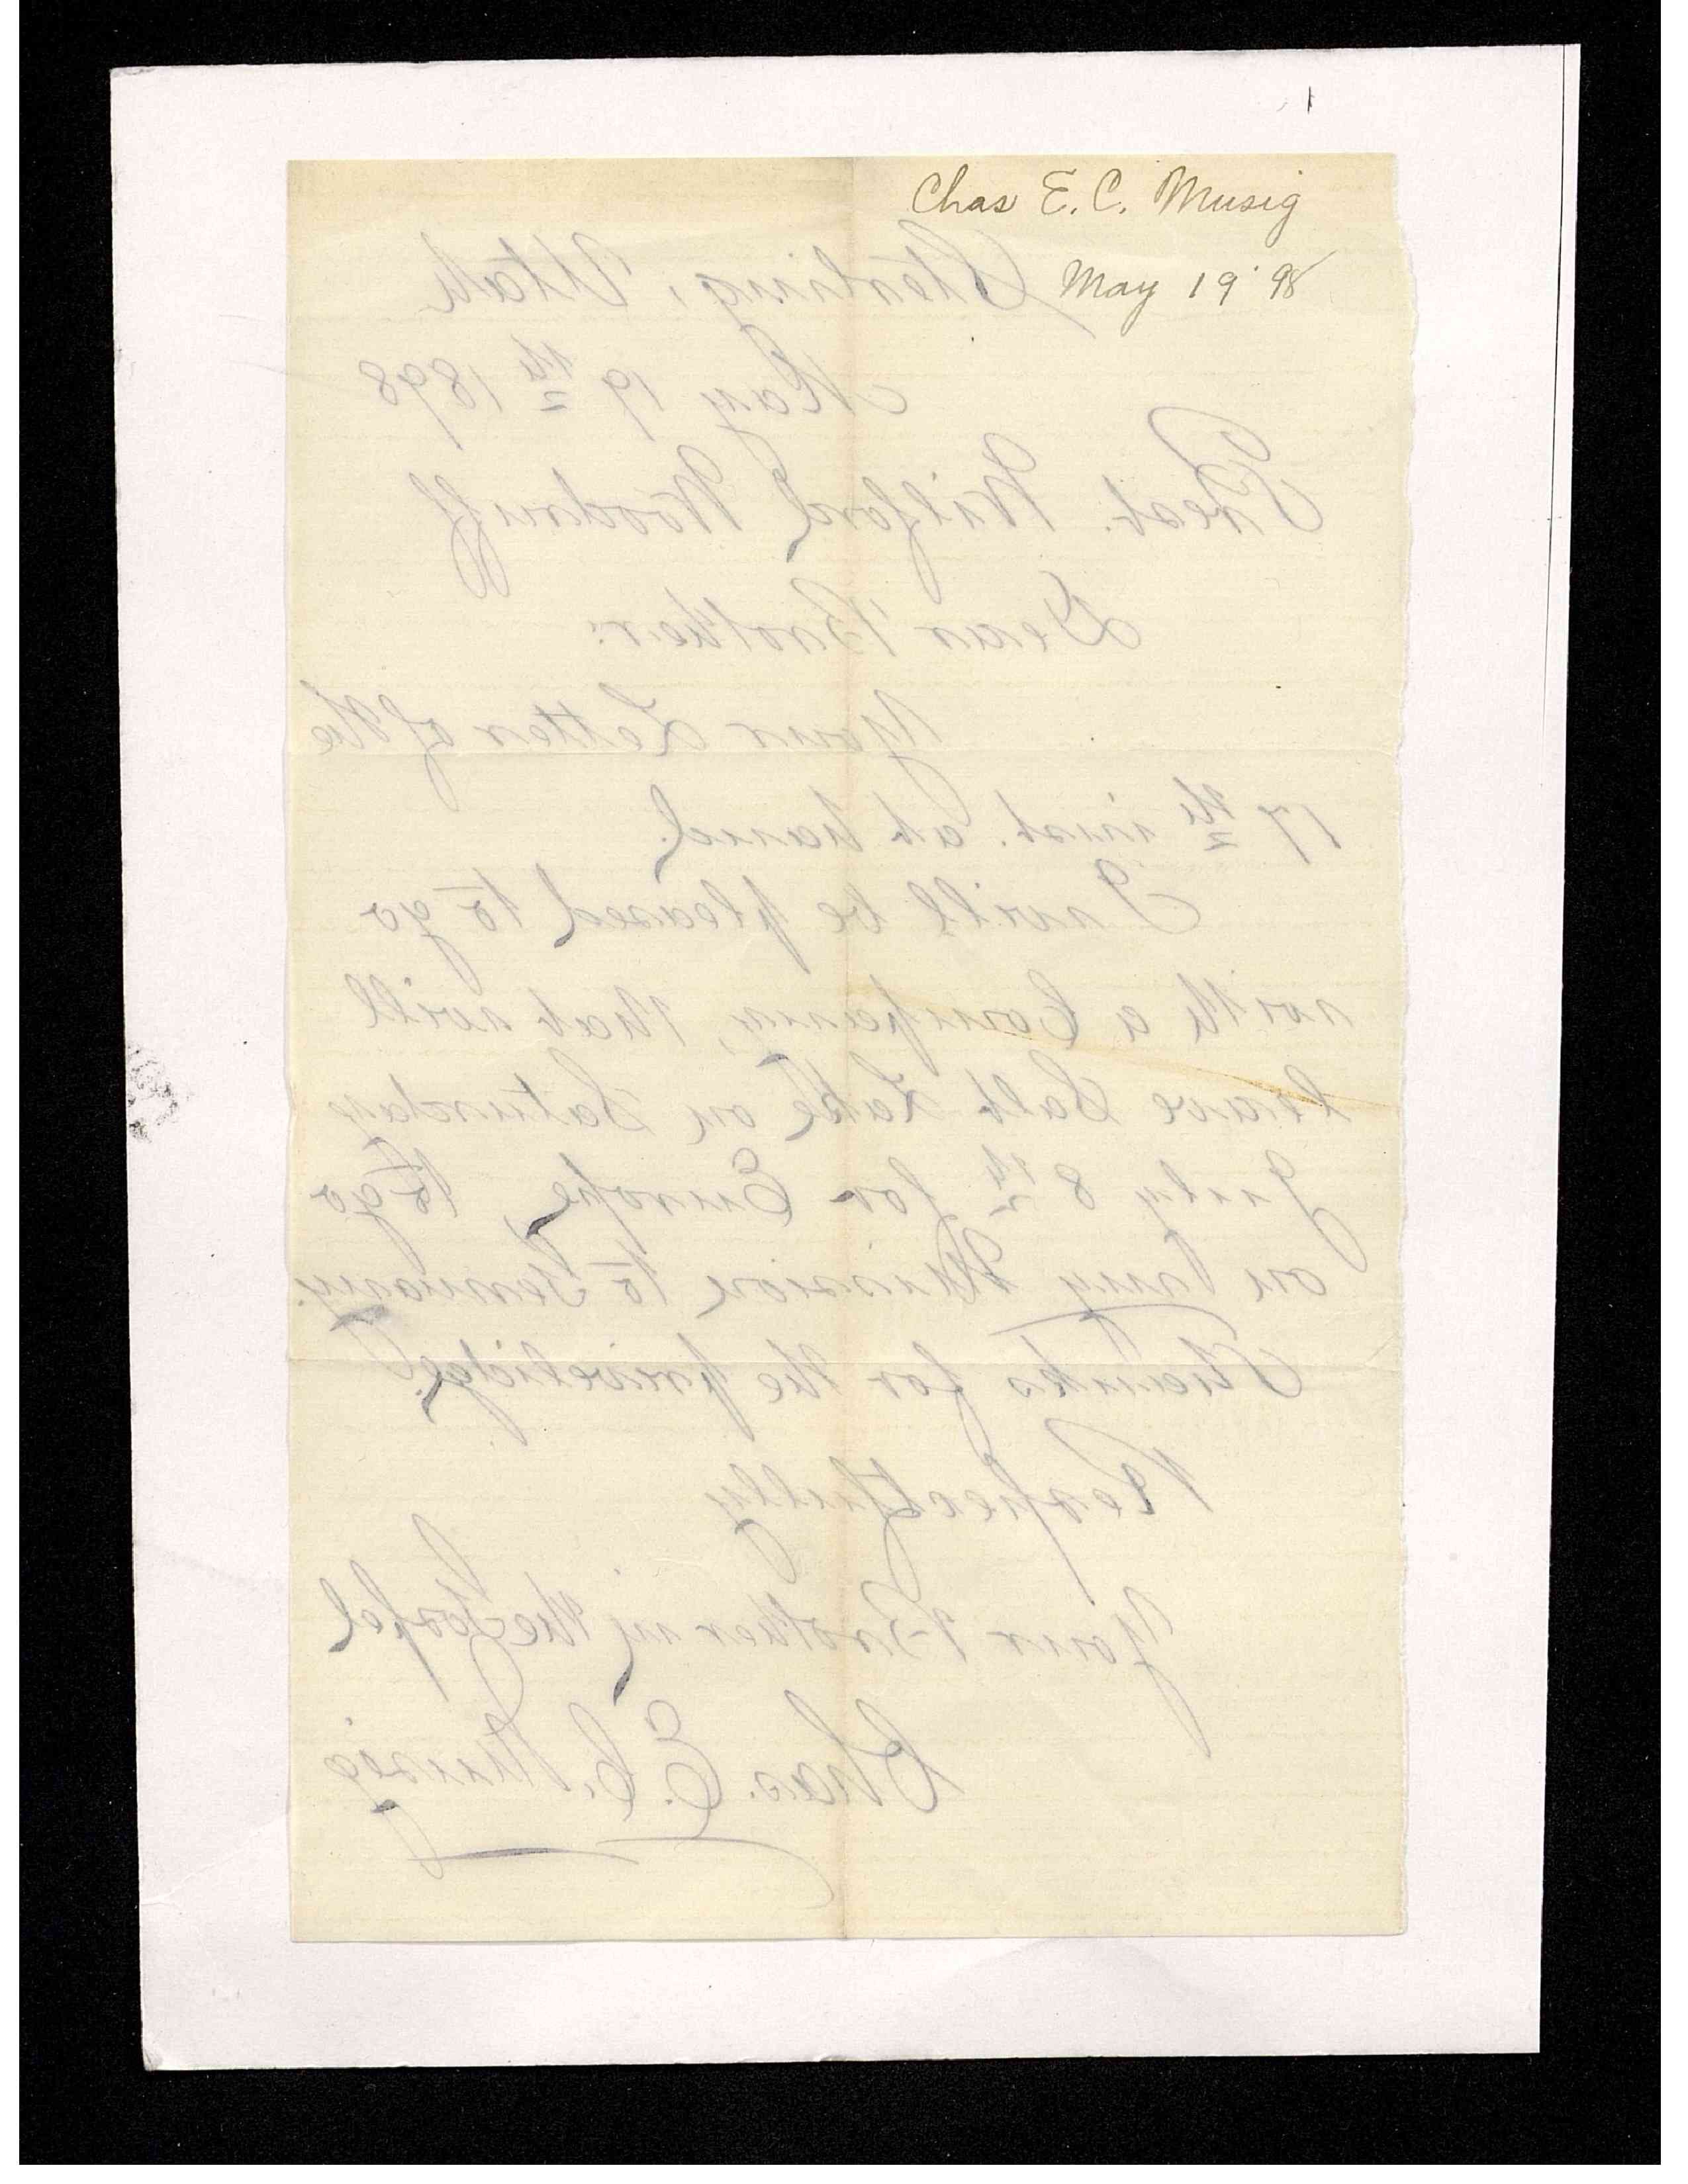 Chas E. C. Musig
May 19 '98
Sterling, Utah
May 19th 1898
Prest. Wilford Woodruff
Dear Brother:
Your Letter of the
17th inst. at hand.
I will be pleased to go
with a Company, that will
leave Salt Lake on Saturday
July 8th for Europe, to go
on my Mission to Germany.
Thanks for the privelidge.
Respectfully
Your Brother in the Gospel
Chas. E. C. Musig